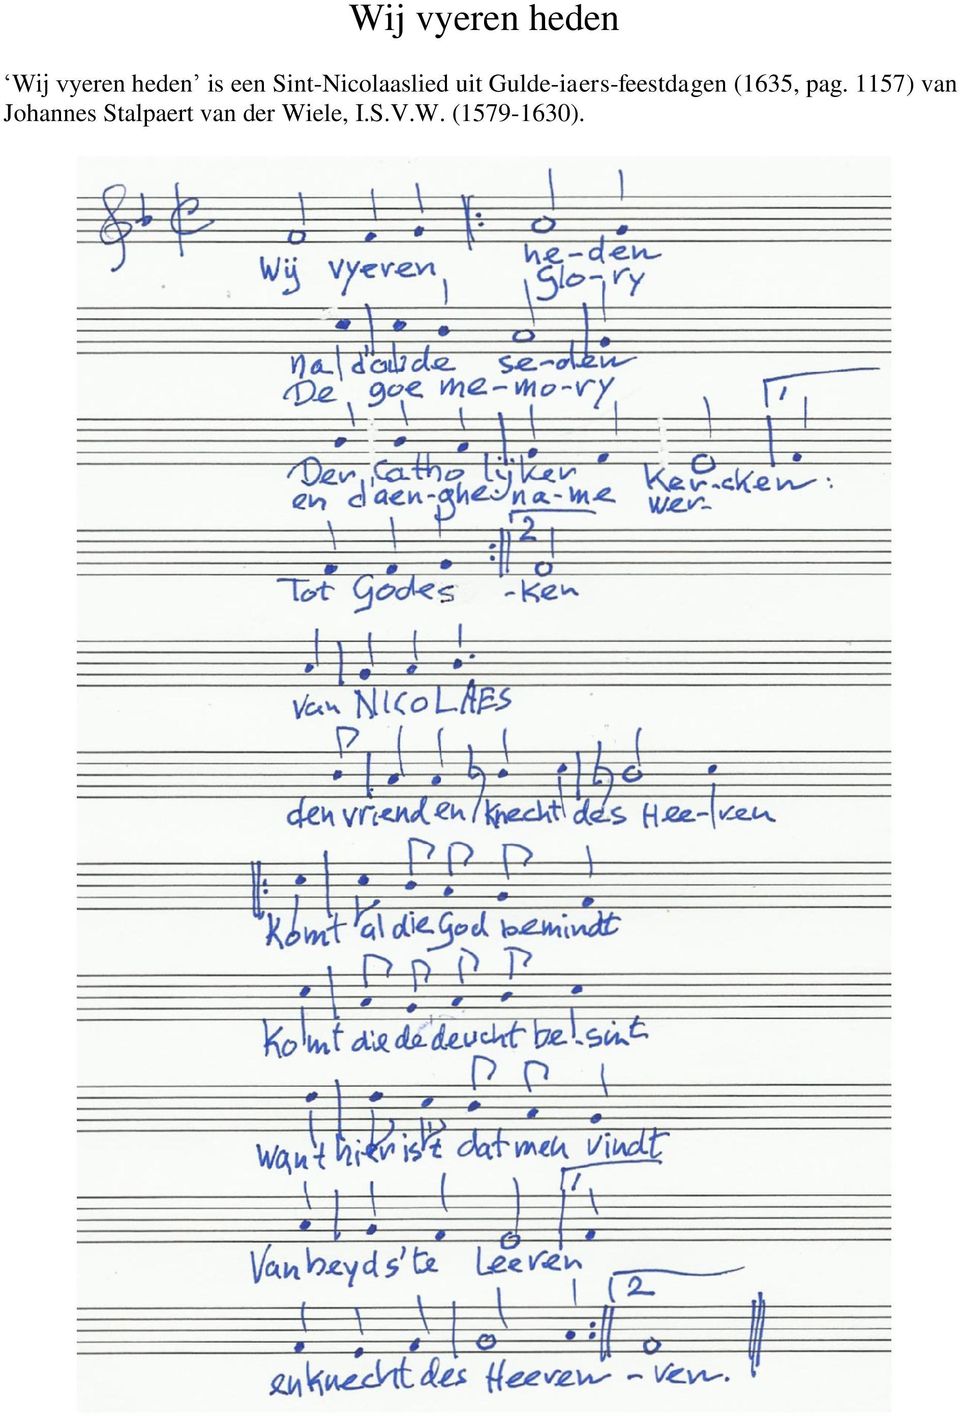 Wij vyeren heden
‘Wij vyeren heden’ is een Sint-Nicolaaslied uit Gulde-iaers-feestdagen (1635, pag. 1157) van
Johannes Stalpaert van der Wiele, I.S.V.W. (1579-1630).
Wij vyeren he-den
Glo-ry
na d'oude se-den
De goe me-mo-ry
1
Der Catho lijker Ker-cken:
en d'aen-ghe-na-me wer-
2
Tot Godes -ken
van NICOLAES
den vriend en knecht des Hee-ren
Komt al die God bemindt
Komt die de deucht be-sint
want hier is't dat men vindt
1
Van beyds 'te Leeren
2
en knecht des Heeren -ren.